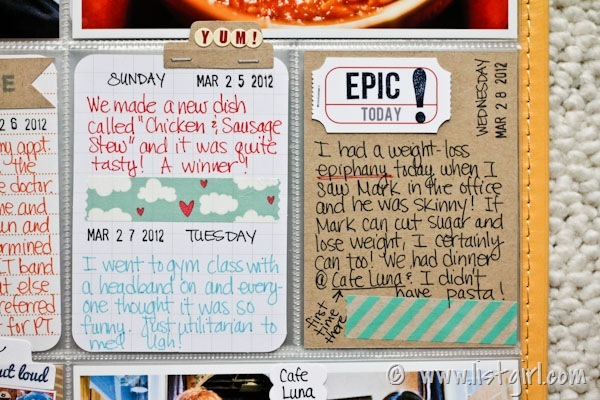 E
26 2012
my appt.
the
doctor.
me and
un and
ermined
IT band
ut else
referred
for PT.
YUM!
SUNDAY MAR 25 2012
We made a new dish
called "Chicken & Sausage
Stew" and it was quite
tasty! A winner!
MAR 27 2012 TUESDAY
I went to gym class with
a headband on and every-
one thought it was so
funny. Just utilitarian to
me! Ugh!
EPIC!
TODAY
WEDNESDAY
MAR 28 2012
I had a weight-loss
epiphany today when I
saw Mark in the office
and he was skinny! If
Mark can cut sugar and
lose weight, I certainly
can too! We had dinner
@ Cafe Luna & I didn't
have pasta!
first
time
there
out loud
Cafe
Luna
© www.listgirl.com